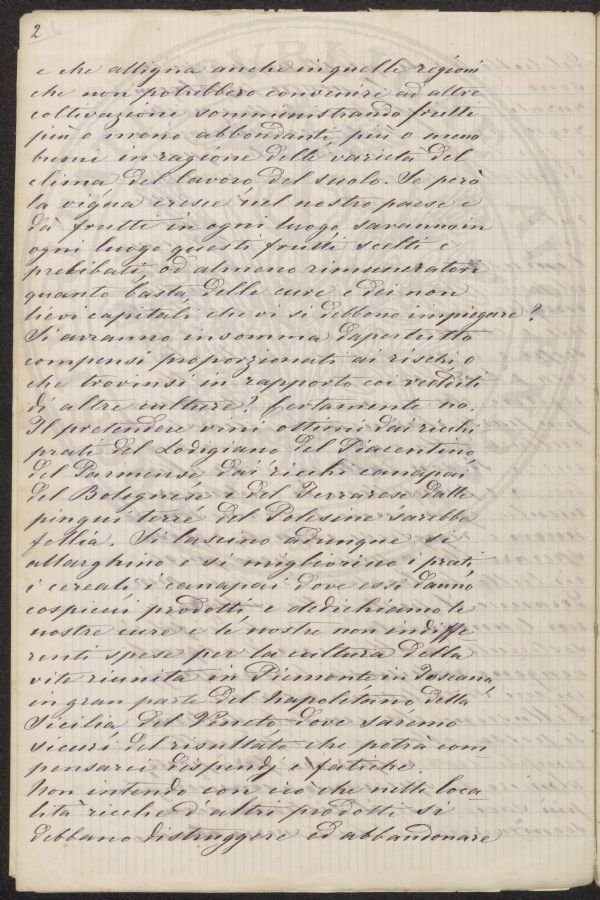 2
e che alligna anche in quelle regioni
che non potrebbero convenire ad altre
coltivazioni somministrando frutti
più o meno abbondanti, più o meno
buoni in ragione delle varietà del
clima del lavoro del suolo. Se però
la vigna cresce nel nostro paese e
dà frutti in ogni luogo, saranno in
ogni luogo questi frutti scelti e
prelibati, od almeno rimuneratori
quanto basta, delle cure e dei non
lievi capitali che vi si debbono impiegare?
Si avranno insomma dapertutto
compensi proporzionati ai rischi, o
che trovinsi in rapporto coi redditi
di altre culture? Certamente no.
Il pretendere vini ottimi dai ricchi
prati del Lodigiano del Piacentino
del Parmense dai ricchi canapai
del Bolognese e del Ferrarese dalle
pingui terre del Polesine sarebbe
follia. Si lascino adunque si
allarghino e si migliorino i prati
i cereali i canapai dove essi danno
cospicui prodotti, e dedichiamo le
nostre cure e le nostre non indiffe
renti spese per la cultura della
vite riunita in Piemonte in Toscana,
in gran parte del Napoletano, della
Sicilia del Veneto dove saremo
sicuri del risultato che potrà com
pensarci dispendj e fatiche.
Non intendo con ciò che nelle loca
lità ricche d'altri prodotti si
debbano distruggere ed abbandonare